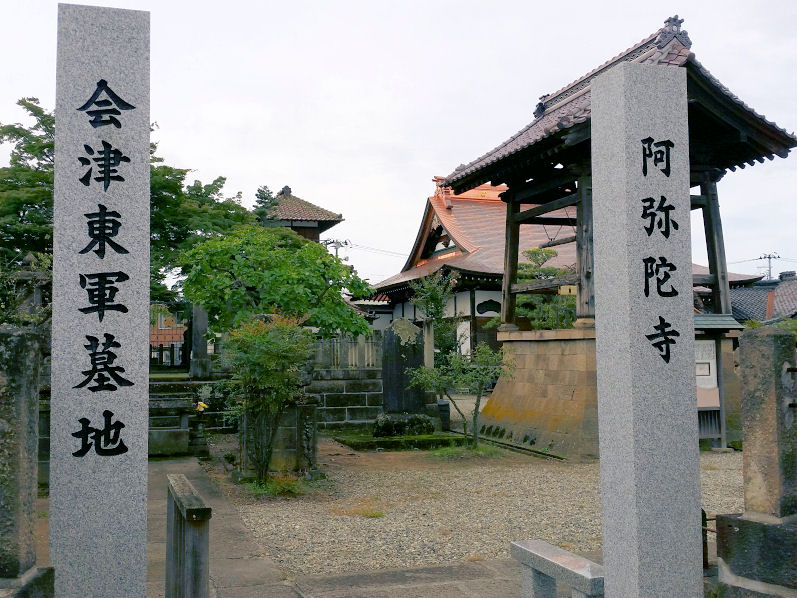 会津東軍墓地
阿弥陀寺